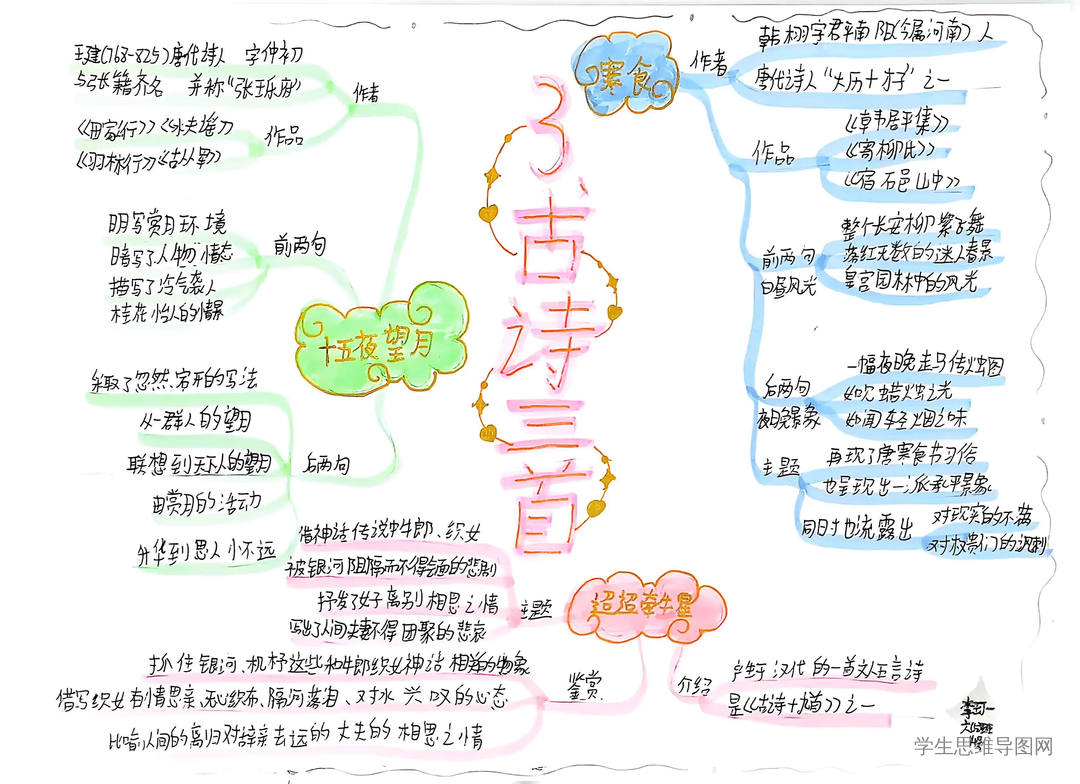 3、古诗三首
寒食
作者
韩栩字君平南阳(今属河南)人
唐代诗人"大历十才子"之一
作品
《韩君平集》
《寄柳氏》
《宿石邑山中》
前两句
白昼风光
整个长安柳絮飞舞
落红无数的迷人春景
皇宫园林中的风光
后两句
夜晚景象
一幅夜晚走马传烛图
如见蜡烛之光
如闻轻烟之味
主题
再现了唐寒食节习俗
也呈现出一派承平景象
同时也流露出
对现实的不满
对权贵们的讽刺
十五夜望月
作者
王建(768-825)唐代诗人 字仲初
与张籍齐名 并称"张王乐府"
作品
《田家行》《水夫谣》
《羽林行》《古从军》
前两句
明写赏月环境
暗写了人物情态
描写了冷气袭人
桂花怡人的情景
后两句
采取了忽然宕开的写法
从一群人的望月
联想到天下人的望月
由赏月的活动力
升华到思人小不远
迢迢牵牛星
主题
借神话传说中牛郎、织女
被银河阻隔而不得会面的悲剧
抒发了女子离别相思之情
写出了人间夫妻不得团聚的悲哀
鉴赏
抓住银河、机杼这些和牛郎织女神话相关的物象
借写织女有情思亲、无心织布、隔河落泪、对水兴叹的心态
比喻人间的离妇对辞亲去远的丈夫的相思之情
介绍
产生于汉代的一首文人五言诗
是《古诗十九首》之一
学生思维导图网